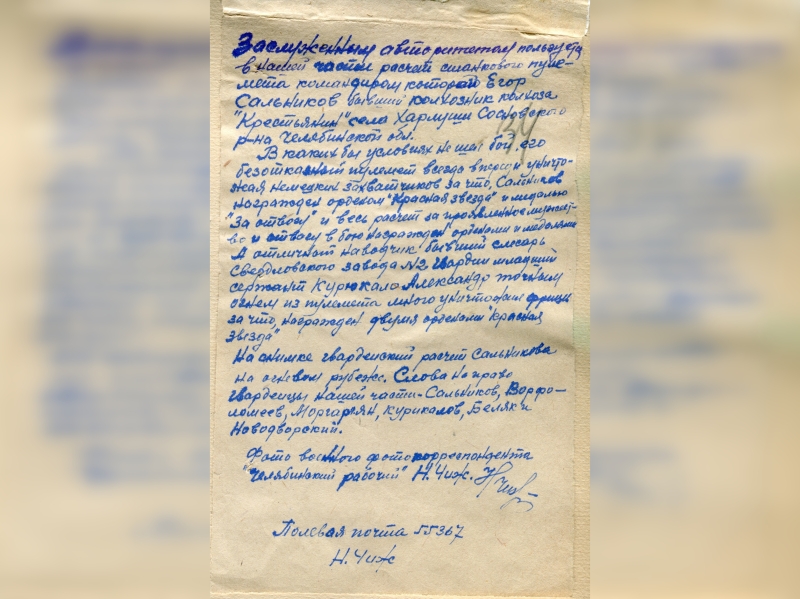 Заслуженным авторитетом пользуется
в нашей части расчет станкового пуле-
мета командиром которой Егор
Сальников бывший колхозник колхоза
"Крестьянин" села Харлуши Сосновского
р-на Челябинской обл.
В каких бы условиях не шел бой, его
безотказный пулемет всегда впереди уничто-
жая немецких захватчиков за что, Сальников
награжден орденом "Красная звезда" и медалью
"За отвагу" и весь расчет за проявленное мужест-
во и отвагу в бою награжден орденами и медалями
А отличный наводчик бывший слесарь
Свердловского завода №2 гвардии младший
сержант Курюкало Александр точным
огнем из пулемета много уничтожил фрицев
за что, награжден двумя орденами "Красная
звезда"
На снимке гвардейский расчет Сальникова
на огневом рубеже. Слева на право
гвардейцы нашей части - Сальников, Ворфо-
ломеев, Моргарян, Курикалов, Беляк и
Новодворский.
Фото военного фотокорреспондента
"Челябинский рабочий" Н. Чиж.
Полевая почта 55367
Н. Чиж